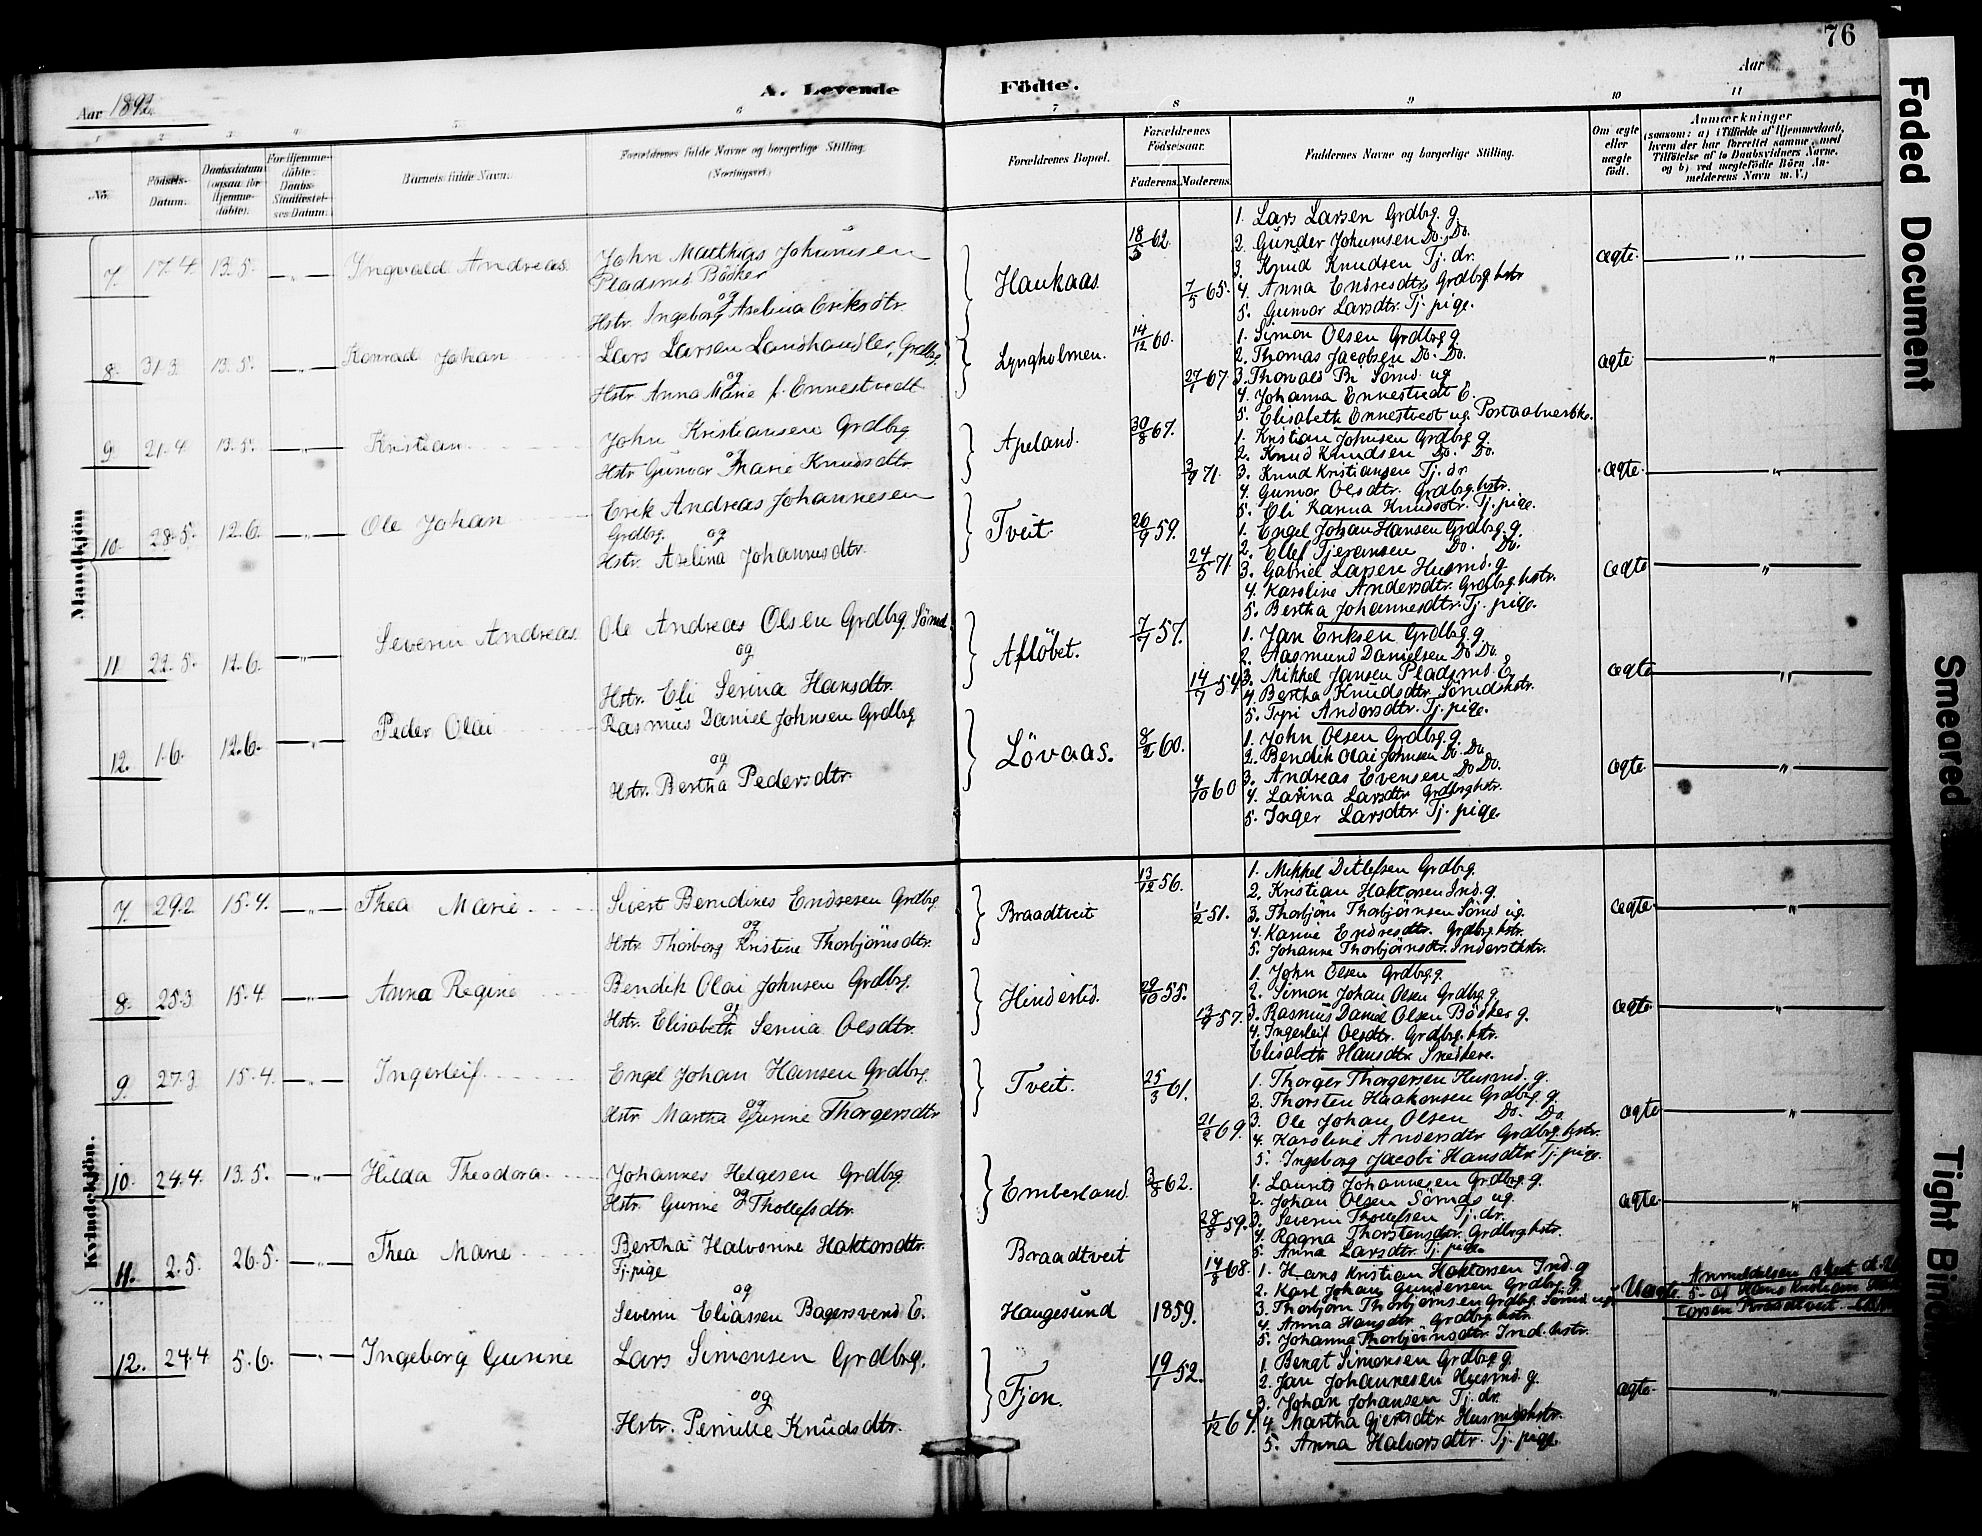 76
Aar 1892.
A. Levende Födte.
Aar
1 2 3 4 5 6 7 8 9 10 11
No.
Födsels-Datum.
Daabsdatum (ogsaa for Hjemme-döbte).
For Hjemme-döbte: Daabs-Stadfæstel-ses-Datum.
Barnets fulde Navn.
Forældrenes fulde Navne og borgerlige Stilling. (Næringsvei.)
Forældrenes Bopæl.
Forældrenes Födselsaar.
Faderens. Moderens.
Faddernes Navne og borgerlige Stilling.
Om ægte eller uægte födt.
Anmærkninger
(saasom: a) i Tilfælde af Hjemmedaab,
hvem der har forrettet samme, med
Tilföielse af to Daabsvidners Navne,
og b) ved uægtefödte Börn An-
melderens Navn m. V.)
Mandkjön
7. 17.4. 13.5. — " — Ingvald Andreas.
John Matthias Johannesen
Pladsmd Bödker
og
Hstr. Ingeborg Aselina Eriksdtr.
Haukaas
18/3 62.
7/5 65.
1. Lars Larsen Grdbrg. g.
2. Gunder Johannsen Do. Do.
3. Knud Knudsen Tj. dr.
4. Anna Endresdtr. Grdbrg.hstr
5. Gunvor Larsdtr. Tj. pige.
ægte. — " —
8. 31.3. 13.5. — " — Konrad Johan
Lars Larsen Landhandler, Grdbrg.
og
Hstr. Anna Marie f. Ennestvedt
Lyngholmen.
14/12 60.
27/1 67
1. Simon Olsen Grdbrg g.
2. Thomas Jacobsen Do. Do.
3. Thorvald Bi Sömd. ug
4. Johanna Ennestvedt E.
5. Elisabeth Ennestvedt ug. Postaabnerske.
ægte. — " —
9. 21.4. 13.5. — " — Kristian
John Kristiansen Grdbrg
og
Hstr. Gunvor Marie Knudsdtr.
Apeland.
30/8 67.
3/9 71.
1. Kristian Johnsen Grdbrg g.
2. Knud Knudsen Do. Do.
3. Knud Kristiansen Tj. dr.
4. Gunvor Olsdtr. Grdbrg.hstr.
5. Eli Karina Knudsdtr. Tj. pige.
ægte. — " —
10. 28.5. 12.6. — " — Ole Johan
Erik Andreas Johannesen
Grdbrg. og
Hstr. Aselina Johannesdtr.
Tveit.
26/9 59.
24/5 71
1. Engel Johan Hansen Grdbrg. g.
2. Ellef Tjeransen Do. Do.
3. Gabriel Larsen Husmd. g
4. Karoline Andersdtr. Grdbrg.hstr.
5. Bertha Johannesdtr. Tj. pige.
ægte — " —
11 22.5. 12.6 — " — Severin Andreas.
Ole Andreas Olsen Grdbrg. Sömd.
og
Hstr. Eli Serina Hansdtr.
Aflöbet.
7/7 57.
14/7 54
1. Jan Eriksen Grdbrg. g.
2. Aasmund Danielsen Do Do.
3. Mikkel Jansen Pladsmd. E.
4. Bertha Knudsdtr. Sömdshstr.
5. Tyri Andersdtr. Tj. pige.
ægte — " —
12. 1.6. 12.6. — " — Peder Olai
Rasmus Daniel Johnsen Grdbrg
og
Hstr. Bertha Pedersdtr.
Lövaas.
8/2 60.
4/10 60
1. John Olsen Grdbrg. g.
2. Bendik Olai Johnsen Do. Do
3. Andreas Evensen Do Do.
4. Larina Larsdtr. Grdbrghstr.
5. Inger Larsdtr. Tj. pige.
ægte. — " —
Kvindekjön.
7. 29.2. 15.4. — " — Thea Marie
Sivert Berndines Endresen Grdbrg.
og
Hstr. Thorborg Kristine Thorbjörnsdtr.
Braadtveit
13/12 56.
1/2 51.
1. Mikkel Ditlefsen Grdbrg.
2. Kristian Haktorsen Ind. g.
3. Thorbjörn Thorbjörnsen Sömd ug.
4. Karine Endresdtr. Grdbrg.hstr.
5. Johanne Thorbjörnsdtr. Indersthstr.
ægte. — " —
8. 25.3. 15.4. — " — Anna Regine
Bendik Olai Johnsen Grdbrg.
og
Hstr. Elisabeth Serina Olsdtr.
Hinderlid.
29/10 55.
1. John Olsen Grdbrg. g.
2. Simon Johan Olsen Grdbrg g.
3. Rasmus Daniel Olsen Bödker g.
4. Ingerleif Olsdtr. Grdbrg. hstr.
Elisabeth Hansdtr. Snedkere.
ægte. — " —
9. 27.3. 15.4. — " — Ingerleif
Engel Johan Hansen Grdbrg.
og
Hstr. Martha Gurine Thorgersdtr
Tveit.
25/3 61.
21/2 69.
1. Thorger Thorgersen Husmd. g.
2. Thorsten Haakonsen Grdbrg. g.
3. Ole Johan Olsen Do. Do.
4. Karoline Andersdtr Grdbrg. hstr.
5. Ingeborg Jacobi Hansdtr. Tj. pige.
ægte — " —
10. 24.4. 13.5. — " — Hilda Theodora.
Johannes Helgesen Grdbrg.
og
Hstr. Gurine Thollefsdtr.
Emberland.
3/8 62.
28/8 59.
1. Laurits Johannesen Grdbrg. g.
2. Johan Olsen Sömds ug.
3. Severin Thollefsen Tj. dr.
4. Ragna Thorstensdtr. Grdbrghstr.
5. Anna Larsdtr. Tj. pige.
ægte. — " —
11. 2.5. 26.5. — " — Thea Marie
Bertha Halvorine Haktorsdtr.
Tj. pige
og
Severin Eliassen Bagersvend E.
Braadtveit
Haugesund
1859.
14/3 68.
1. Hans Kristian Haktorsen Ind. g
2. Karl Johan Gundersen Grdbrg. g.
3. Thorbjörn Thorbjörnsen Grdbrg. Sömd ug.
4. Anna Hansdtr. Grdbrg.hstr.
5. Johanna Thorbjörnsdtr. Ind. hstr.
Uægte
Anmeldelsen skeet d.
5. af Hans Kristian
torsen Braadtveit
12. 24.4 5.6. — " — Ingeborg Gurine
Lars Simonsen Grdbrg.
og
Hstr. Pernille Knudsdtr.
Fjon.
19/1 52.
1/12 64.
1. Bengt Simonsen Grdbrg g.
2. Jan Johannesen Husmd. g.
3. Johan Johansen Tj. dr.
4. Martha Gjertsdtr. Husmdshstr.
5. Anna Halvorsdtr. Tj. pige.
ægte. — " —
Faded Document
Smeared
Tight Bin